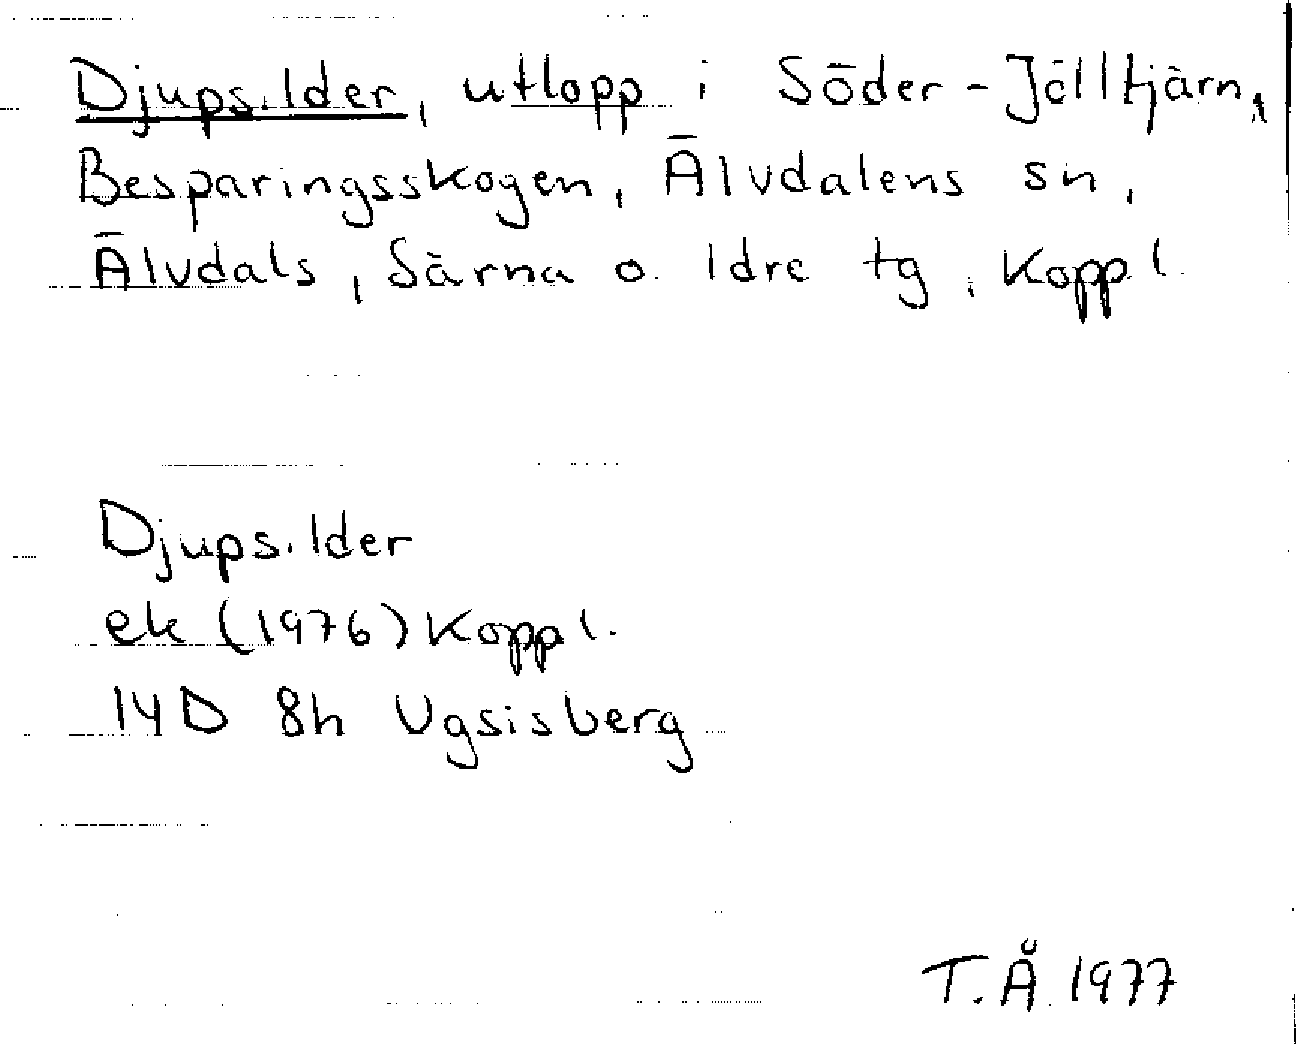 Djupsilder, utlopp i Söder-Jölltjärn,
Besparingsskogen, Älvdalens sn,
Älvdals, Särna o. Idre tg, Koppl.
Djupsilder
ek (1976) Koppl.
14D 8h Ugsisberg
T.Å. 1977